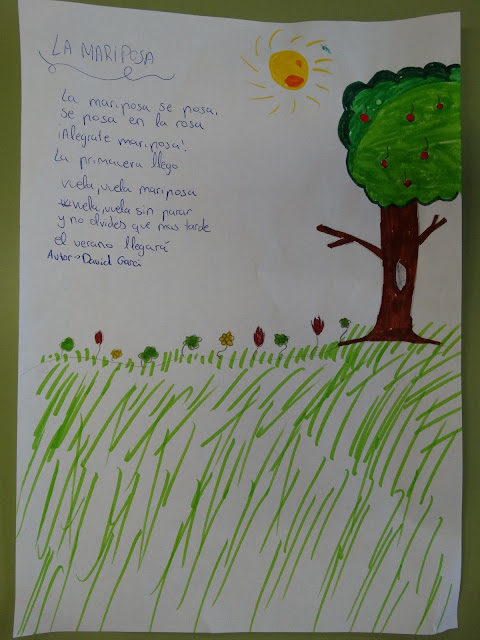 LA MARIPOSA
La mariposa se posa,
se posa en la rosa
¡Alégrate mariposa!
La primavera llego
vuela, vuela mariposa
vuela, vuela sin parar
y no olvides que mas tarde
el verano llegará
Autor→David Garci